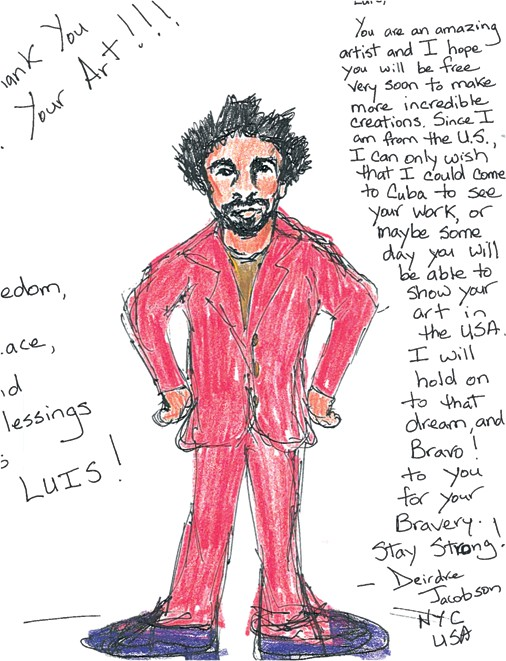 ank You
Your Art!!!
edom,
ace,
d
lessings
LUIS!
Luis,
You are an amazing
artist and I hope
you will be free
very soon to make
more incredible
creations. Since I
am from the U.S.,
I can only wish
that I could come
to Cuba to see
your work, or
maybe some
day you will
be able to
show your
art in
the USA.
I will
hold on
to that
dream, and
Bravo!
to you
for your
Bravery.
Stay Strong!
- Deirdre
Jacobson
NYC
USA